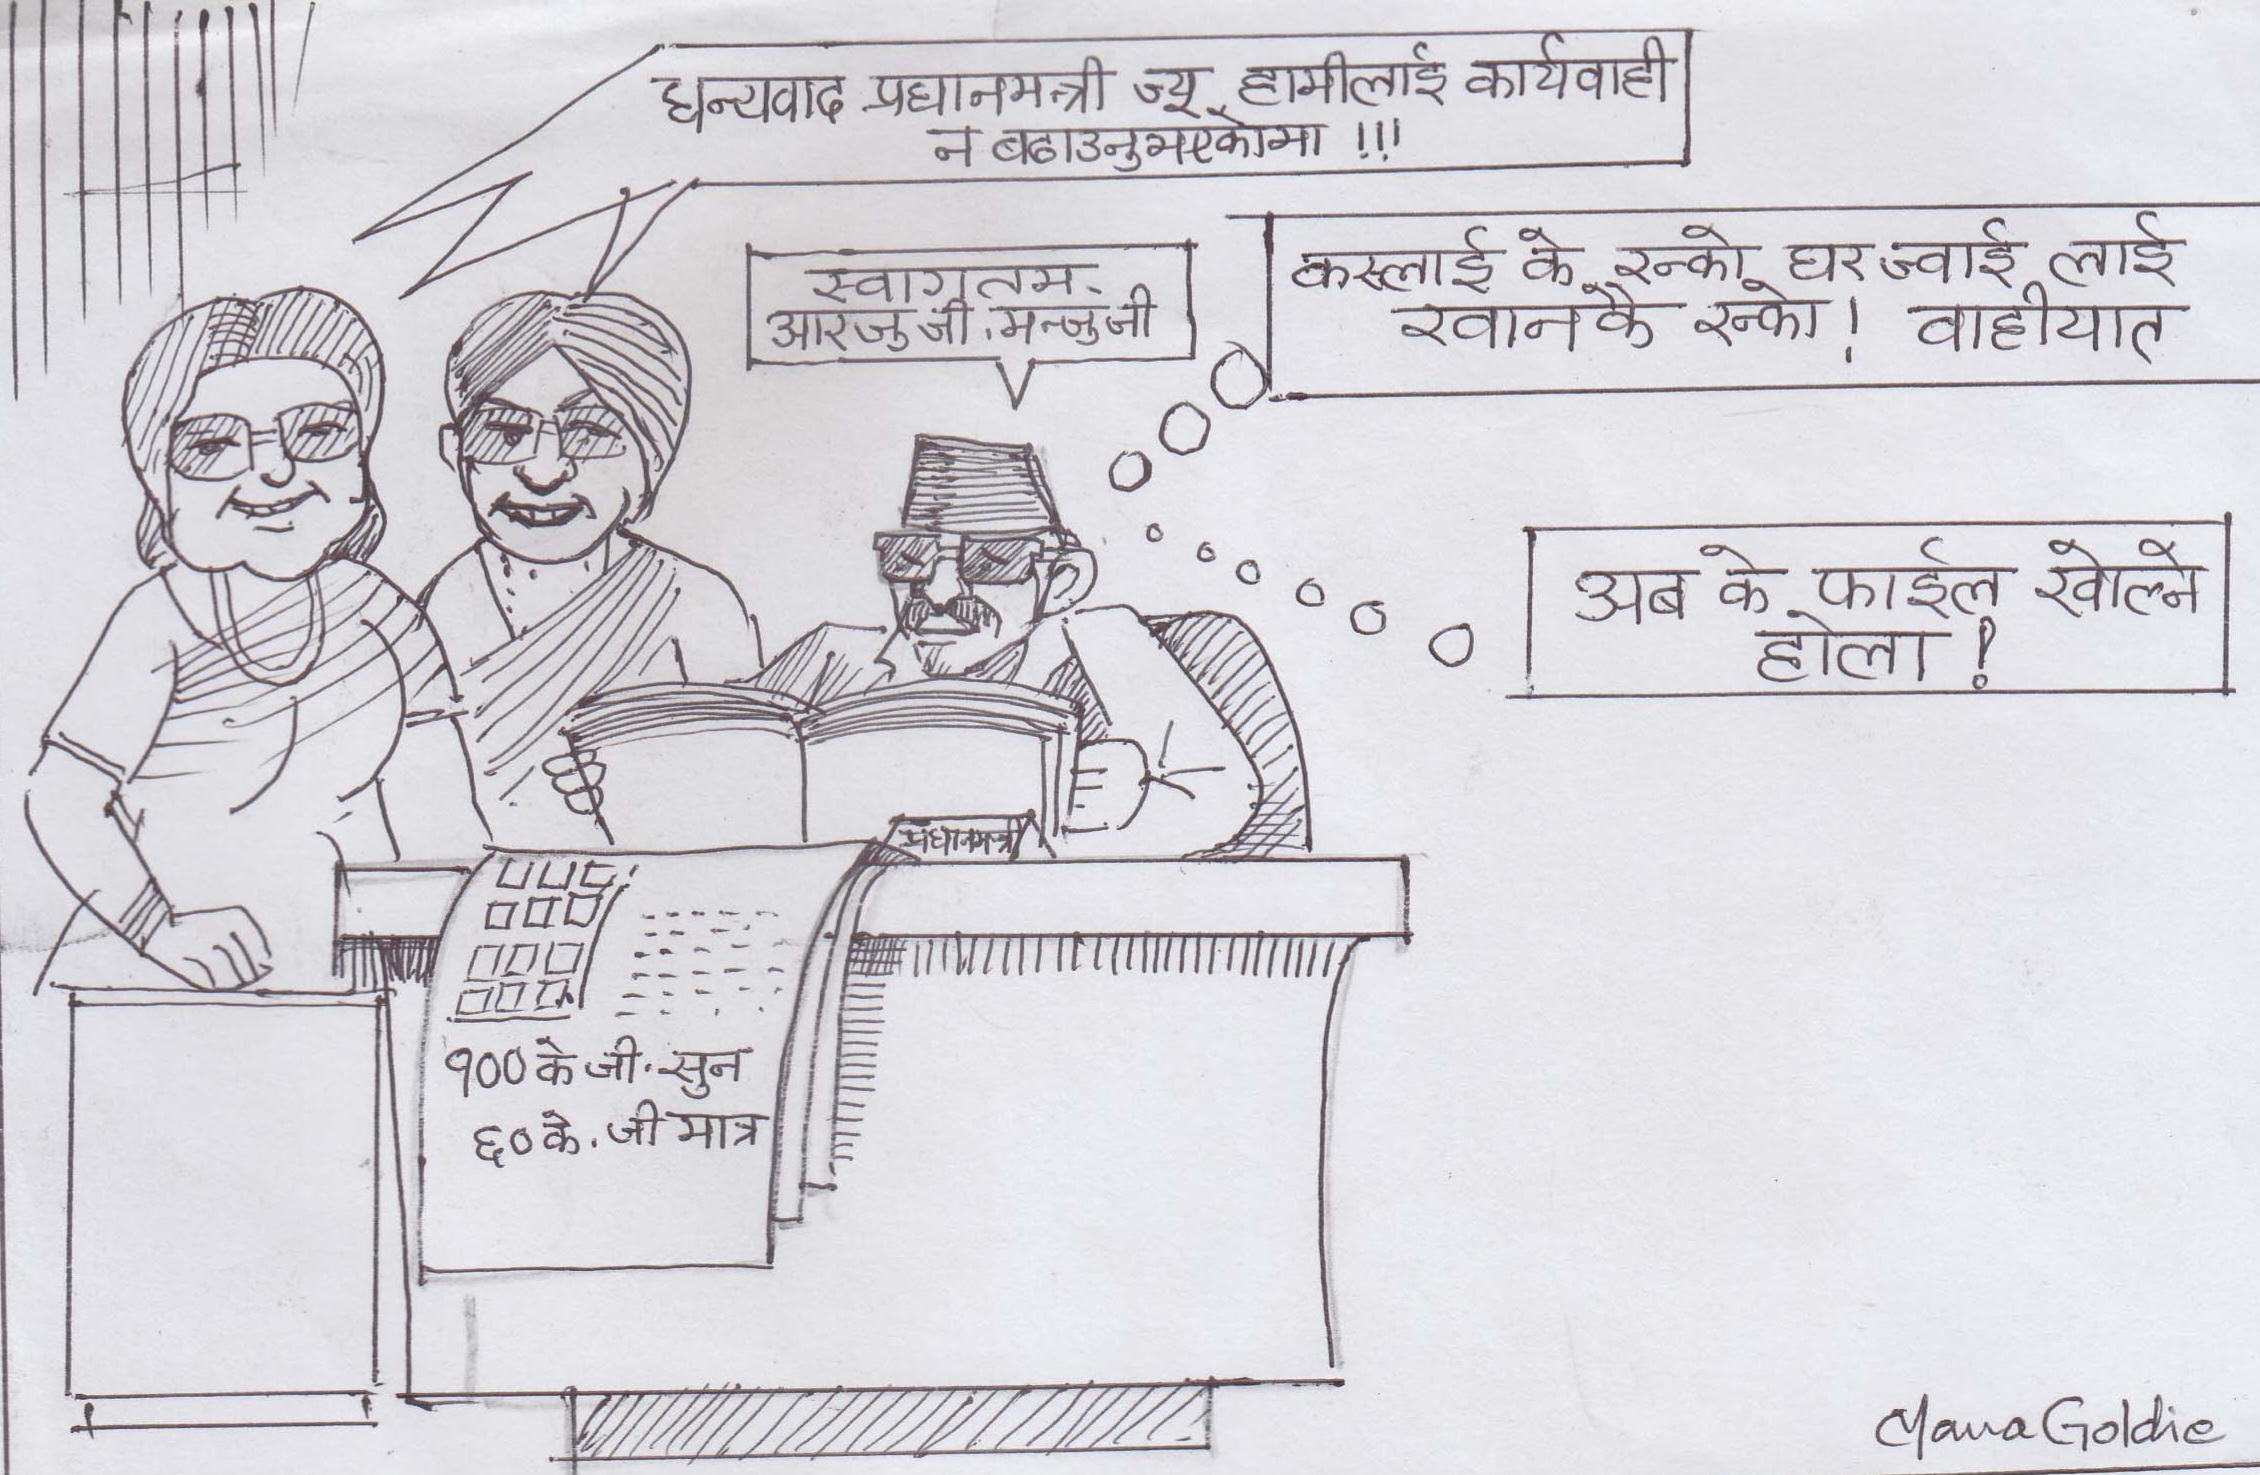 धन्यवाद प्रधानमन्त्री ज्यू हामीलाई कार्यवाही
न बढाउनुभएकोमा !!!
स्वागतम
आरजु जी. मन्जुजी
कस्लाई के रन्को घर ज्वाई लाई
खानकै रन्को! वाहीयात
अब के फाईल खोल्ने
होला!
प्रधानमन्त्री
१०० के जी. सुन
६० के. जी मात्र
Mana Goldie